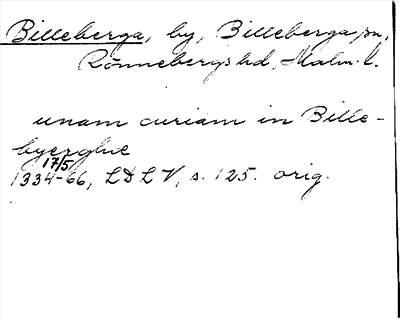 Billeberga, by, Billeberga sn,
Rönnebergs hd, Malm. l.
unam curiam in Bille-
byerghæ
17/5
1334-66, LDLV, s. 125. orig.